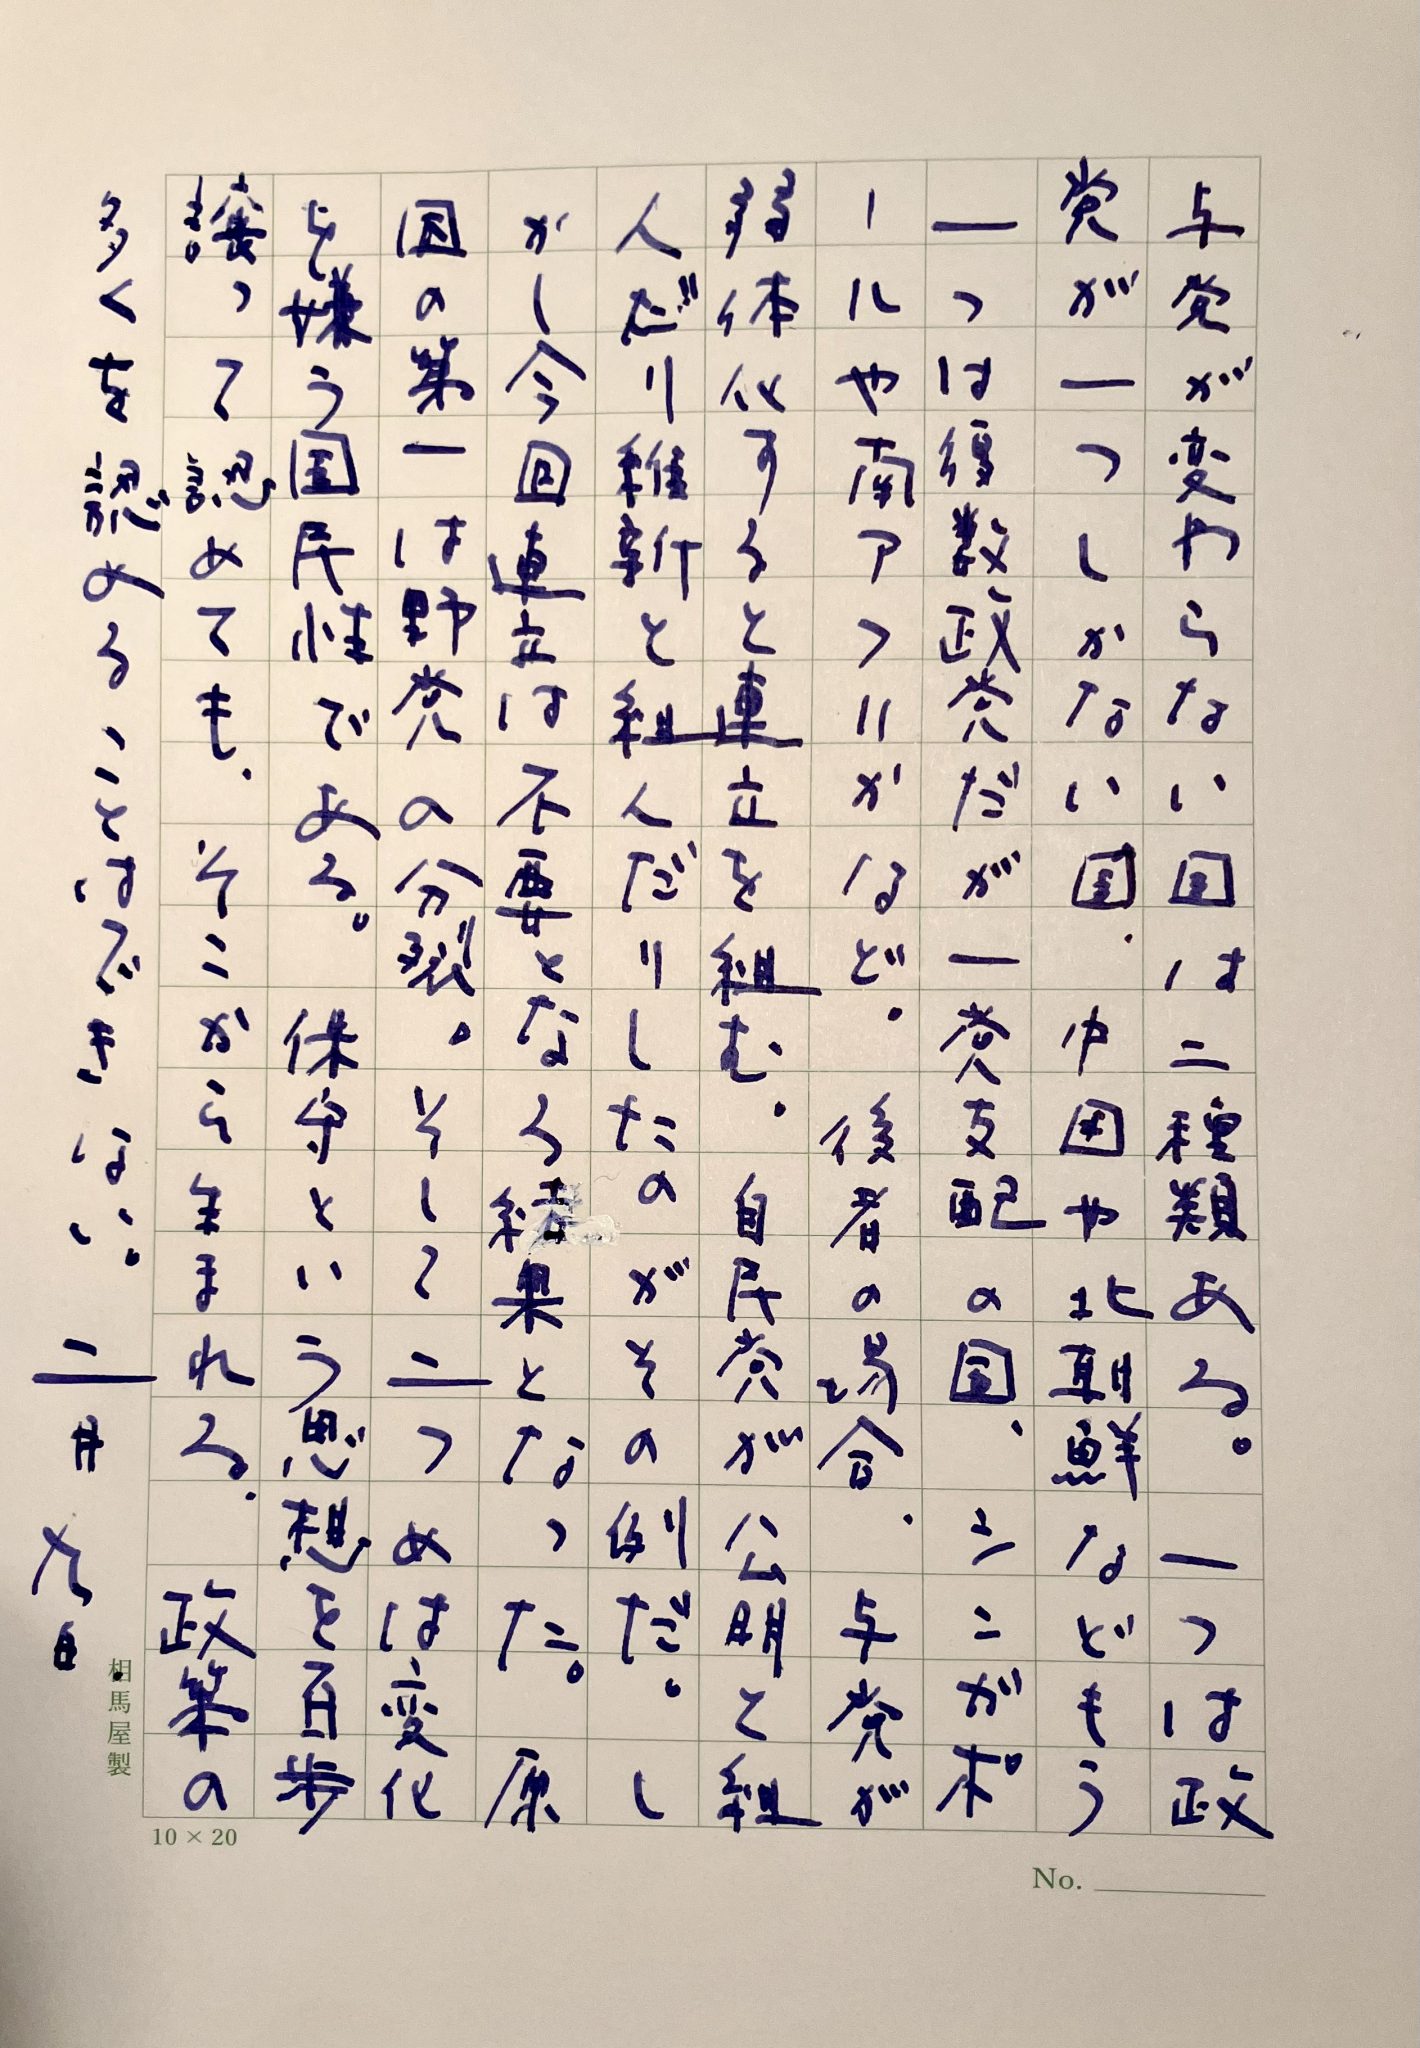 与党が変わらない国は二種類ある。一つは政
党が一つしかない国。中国や北朝鮮などもう
一つは複数政党だが一党支配の国、シンガポ
ールや南アフリカなど。後者の場合、与党が
弱体化すると連立を組む。自民党が公明と組
んだり維新と組んだりしたのがその例だ。し
かし今回連立は不要となる結果となった。原
因の第一は野党の分裂。そして二つめは変化
を嫌う国民性である。保守という思想を百歩
譲って認めても、そこから生まれる政策の
多くを認めることはできない。
二月九日
相馬屋製
10×20
No.